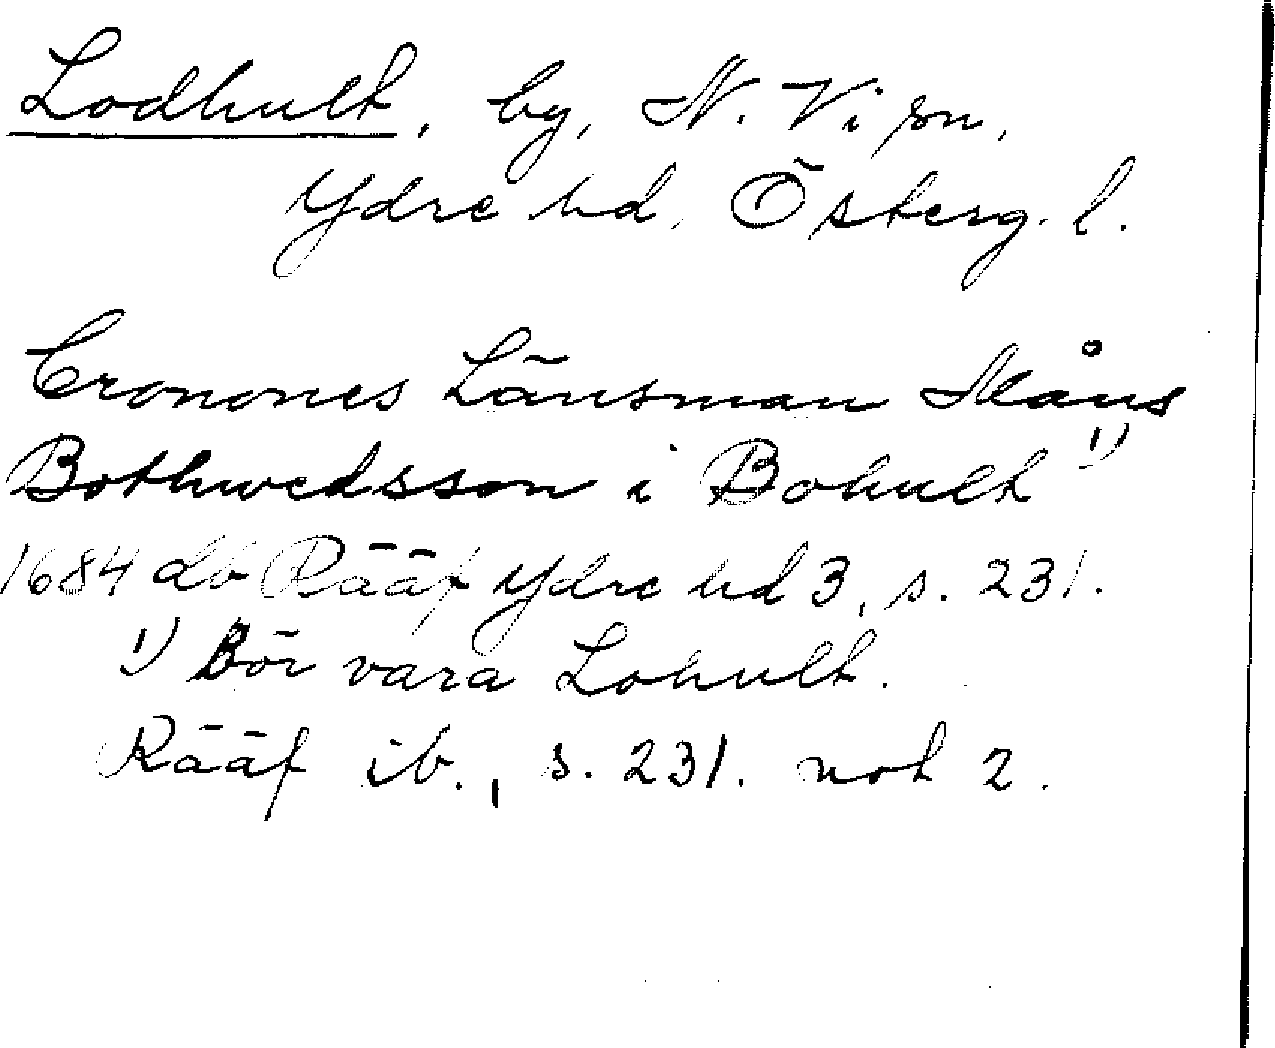 Lodhult, by, N. Vi sn,
Ydre hd, Österg. l.
Cronones Länsman Måns
Bothwedsson i Bohult 1)
1684 db Rääf Ydre hd 3, s. 231.
1) Bör vara Lohult.
Rääf ib., s. 231. not 2.